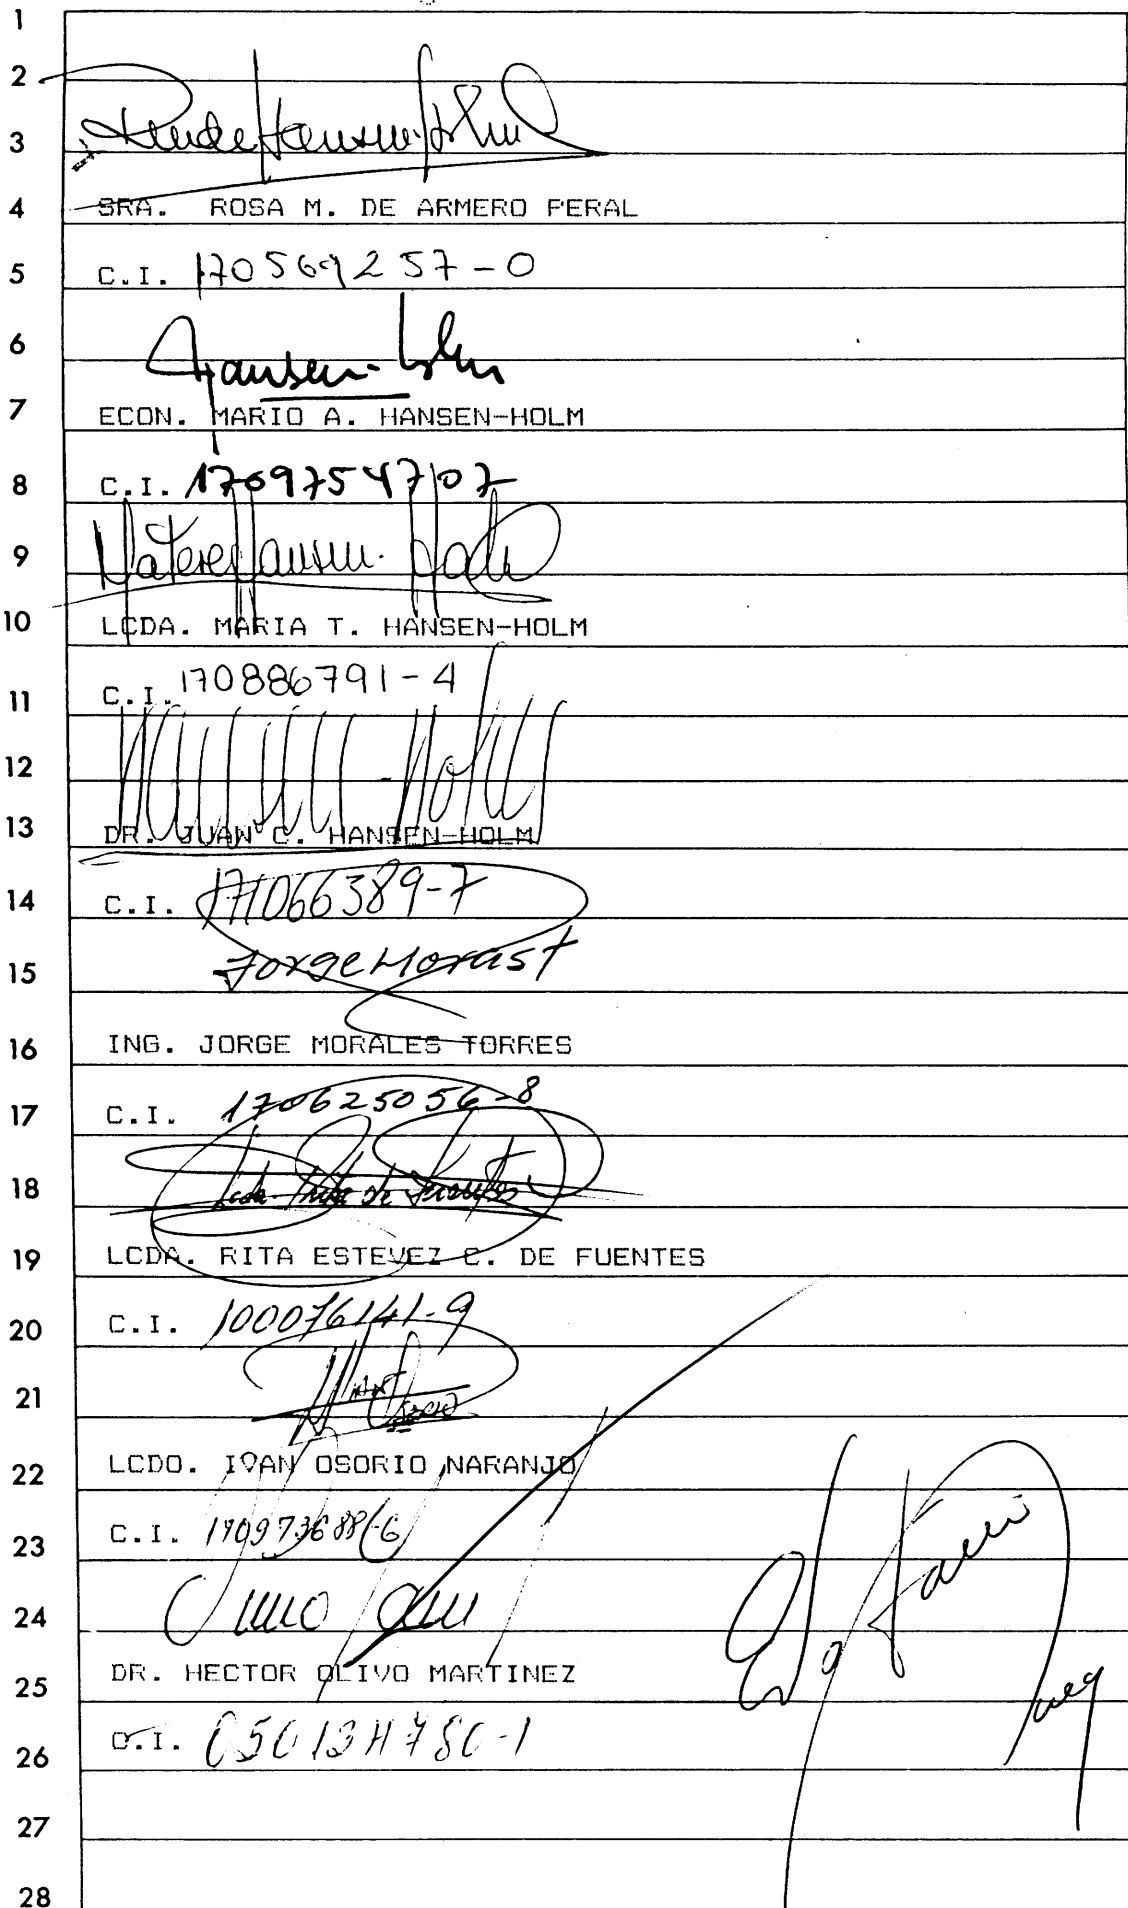 1
2
3
4 SRA. ROSA M. DE ARMERO PERAL
5 C.I. 170569257-0
6 Hansen-Holm
7 ECON. MARIO A. HANSEN-HOLM
8 C.I. 1709754707
9 Hansen-Holm
10 LCDA. MARIA T. HANSEN-HOLM
11 C.I. 170886791-4
12
13 DR. JUAN C. HANSEN-HOLM
14 C.I. 171066389-7
15 Jorge
16 ING. JORGE MORALES TORRES
17 C.I. 170625056-8
18 Lcda. Rita de Fuentes
19 LCDA. RITA ESTEVEZ C. DE FUENTES
20 C.I. 100076141-9
21
22 LCDO. IVAN OSORIO NARANJO
23 C.I. 170973688-6
24
25 DR. HECTOR OLIVO MARTINEZ
26 C.I.
27
28